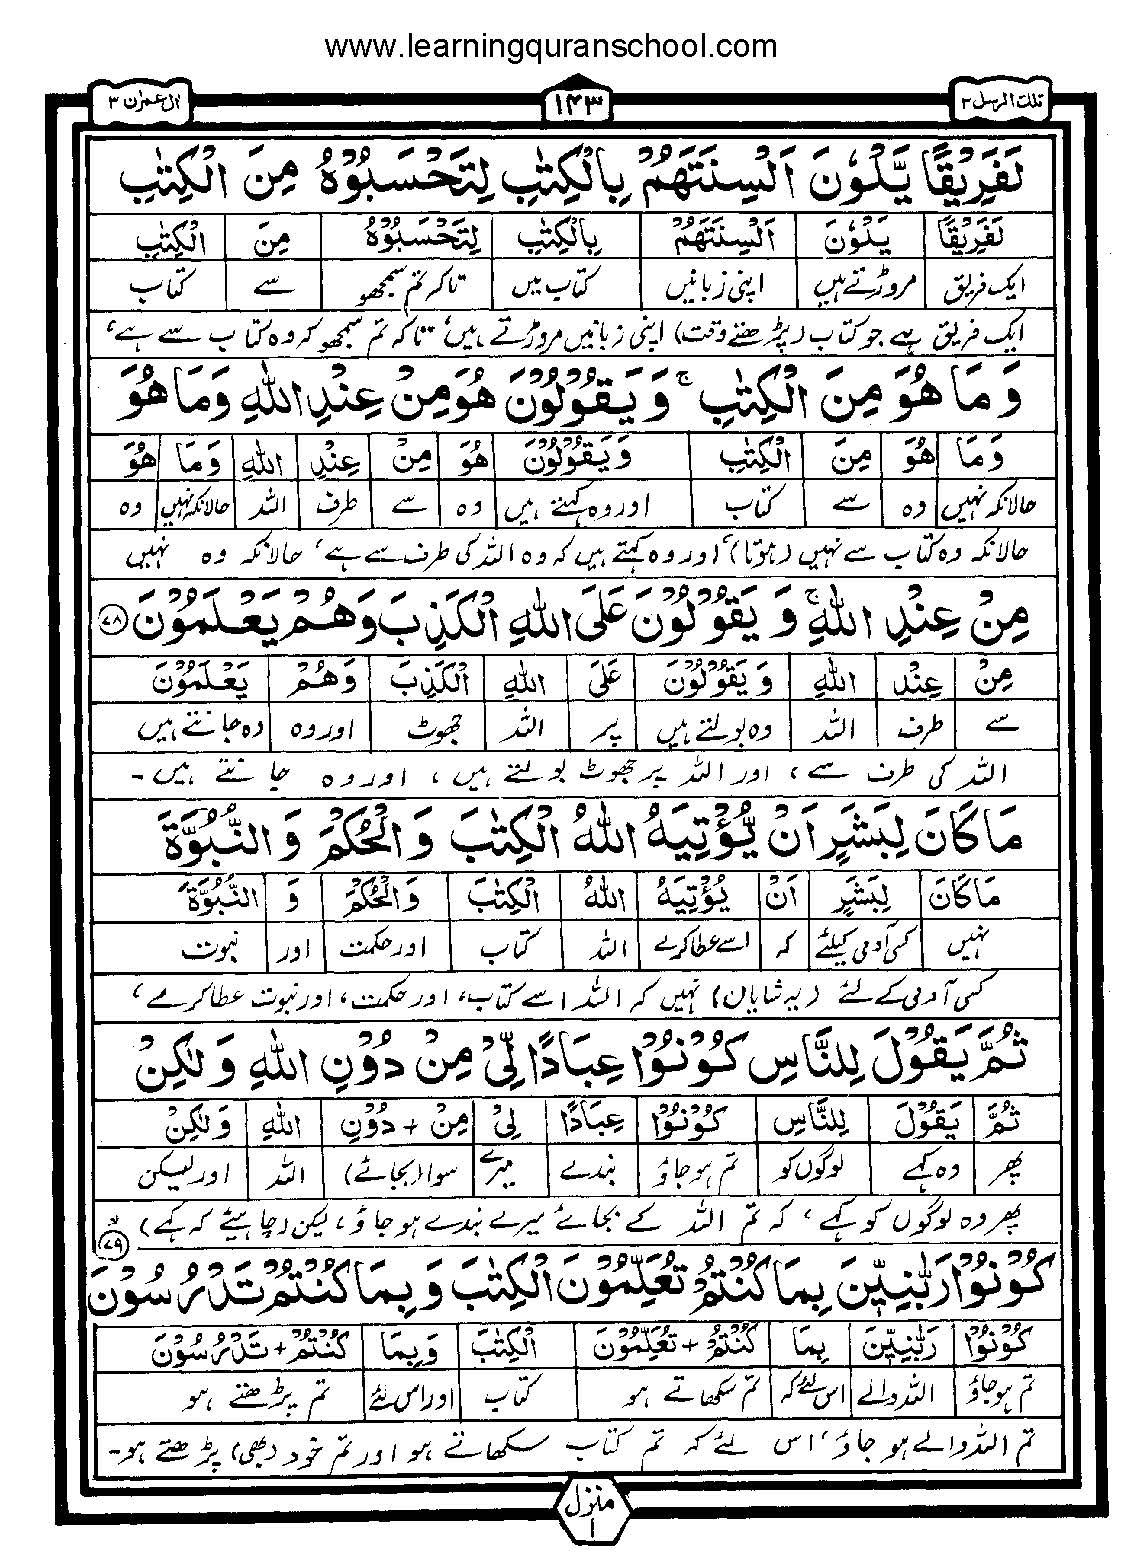 www.learningquranschool.com
تلك الرسل ۳
۱۴۳
ال عمران ۳
لَفَرِيْقًا يَّلْوٗنَ اَلْسِنَتَهُمْ بِالْكِتٰبِ لِتَحْسَبُوْهُ مِنَ الْكِتٰبِ
لَفَرِيْقًا يَلْوٗنَ اَلْسِنَتَهُمْ بِالْكِتٰبِ لِتَحْسَبُوْهُ مِنَ الْكِتٰبِ
ایک فریق مروڑتے ہیں اپنی زبانیں کتاب میں تاکہ تم سمجھو سے کتاب
ایک فریق ہے جو کتاب (پڑھتے وقت) اپنی زبانیں مروڑتے ہیں، تاکہ تم سمجھو کہ وہ کتاب سے ہے،
وَمَا هُوَ مِنَ الْكِتٰبِ ۚ وَيَقُوْلُوْنَ هُوَ مِنْ عِنْدِ اللّٰهِ وَمَا هُوَ
وَمَا هُوَ مِنَ الْكِتٰبِ وَيَقُوْلُوْنَ هُوَ مِنْ عِنْدِ اللّٰهِ وَمَا هُوَ
حالانکہ نہیں وہ سے کتاب اور وہ کہتے ہیں وہ سے طرف اللہ حالانکہ نہیں وہ
حالانکہ وہ کتاب سے نہیں (ہوتا)، اور وہ کہتے ہیں کہ وہ اللہ کی طرف سے ہے، حالانکہ وہ نہیں
مِنْ عِنْدِ اللّٰهِ ۚ وَيَقُوْلُوْنَ عَلَى اللّٰهِ الْكَذِبَ وَهُمْ يَعْلَمُوْنَ ۷۸
مِنْ عِنْدِ اللّٰهِ وَيَقُوْلُوْنَ عَلَى اللّٰهِ الْكَذِبَ وَهُمْ يَعْلَمُوْنَ
سے طرف اللہ وہ بولتے ہیں پر اللہ جھوٹ اور وہ وہ جانتے ہیں
اللہ کی طرف سے، اور اللہ پر جھوٹ بولتے ہیں، اور وہ جانتے ہیں۔
مَا كَانَ لِبَشَرٍ اَنْ يُّؤْتِيَهُ اللّٰهُ الْكِتٰبَ وَالْحُكْمَ وَالنُّبُوَّةَ
مَا كَانَ لِبَشَرٍ اَنْ يُؤْتِيَهُ اللّٰهُ الْكِتٰبَ وَالْحُكْمَ وَ النُّبُوَّةَ
نہیں کسی آدمی کیلئے کہ اسے عطا کرے اللہ کتاب اور حکمت اور نبوت
کسی آدمی کے لئے (یہ شایان) نہیں کہ اللہ اسے کتاب، اور حکمت، اور نبوت عطا کرے،
ثُمَّ يَقُوْلَ لِلنَّاسِ كُوْنُوْا عِبَادًا لِّيْ مِنْ دُوْنِ اللّٰهِ وَلٰكِنْ
ثُمَّ يَقُوْلَ لِلنَّاسِ كُوْنُوْا عِبَادًا لِيْ مِنْ + دُوْنِ اللّٰهِ وَلٰكِنْ
پھر وہ کہے لوگوں کو تم ہو جاؤ بندے میرے سوا (بجائے) اللہ اور لیکن
پھر وہ لوگوں کو کہے، کہ تم اللہ کے بجائے میرے بندے ہو جاؤ، لیکن (چاہیئے کہ کہے)
۷۹
كُوْنُوْا رَبّٰنِيّٖنَ بِمَا كُنْتُمْ تُعَلِّمُوْنَ الْكِتٰبَ وَبِمَا كُنْتُمْ تَدْرُسُوْنَ
كُوْنُوْا رَبّٰنِيّٖنَ بِمَا كُنْتُمْ + تُعَلِّمُوْنَ الْكِتٰبَ وَبِمَا كُنْتُمْ + تَدْرُسُوْنَ
تم ہو جاؤ اللہ والے اس لئے کہ تم سکھاتے ہو کتاب اور اس لئے تم پڑھتے ہو
تم اللہ والے ہو جاؤ، اس لئے کہ تم کتاب سکھاتے ہو اور تم خود (بھی) پڑھتے ہو۔
منزل
۱